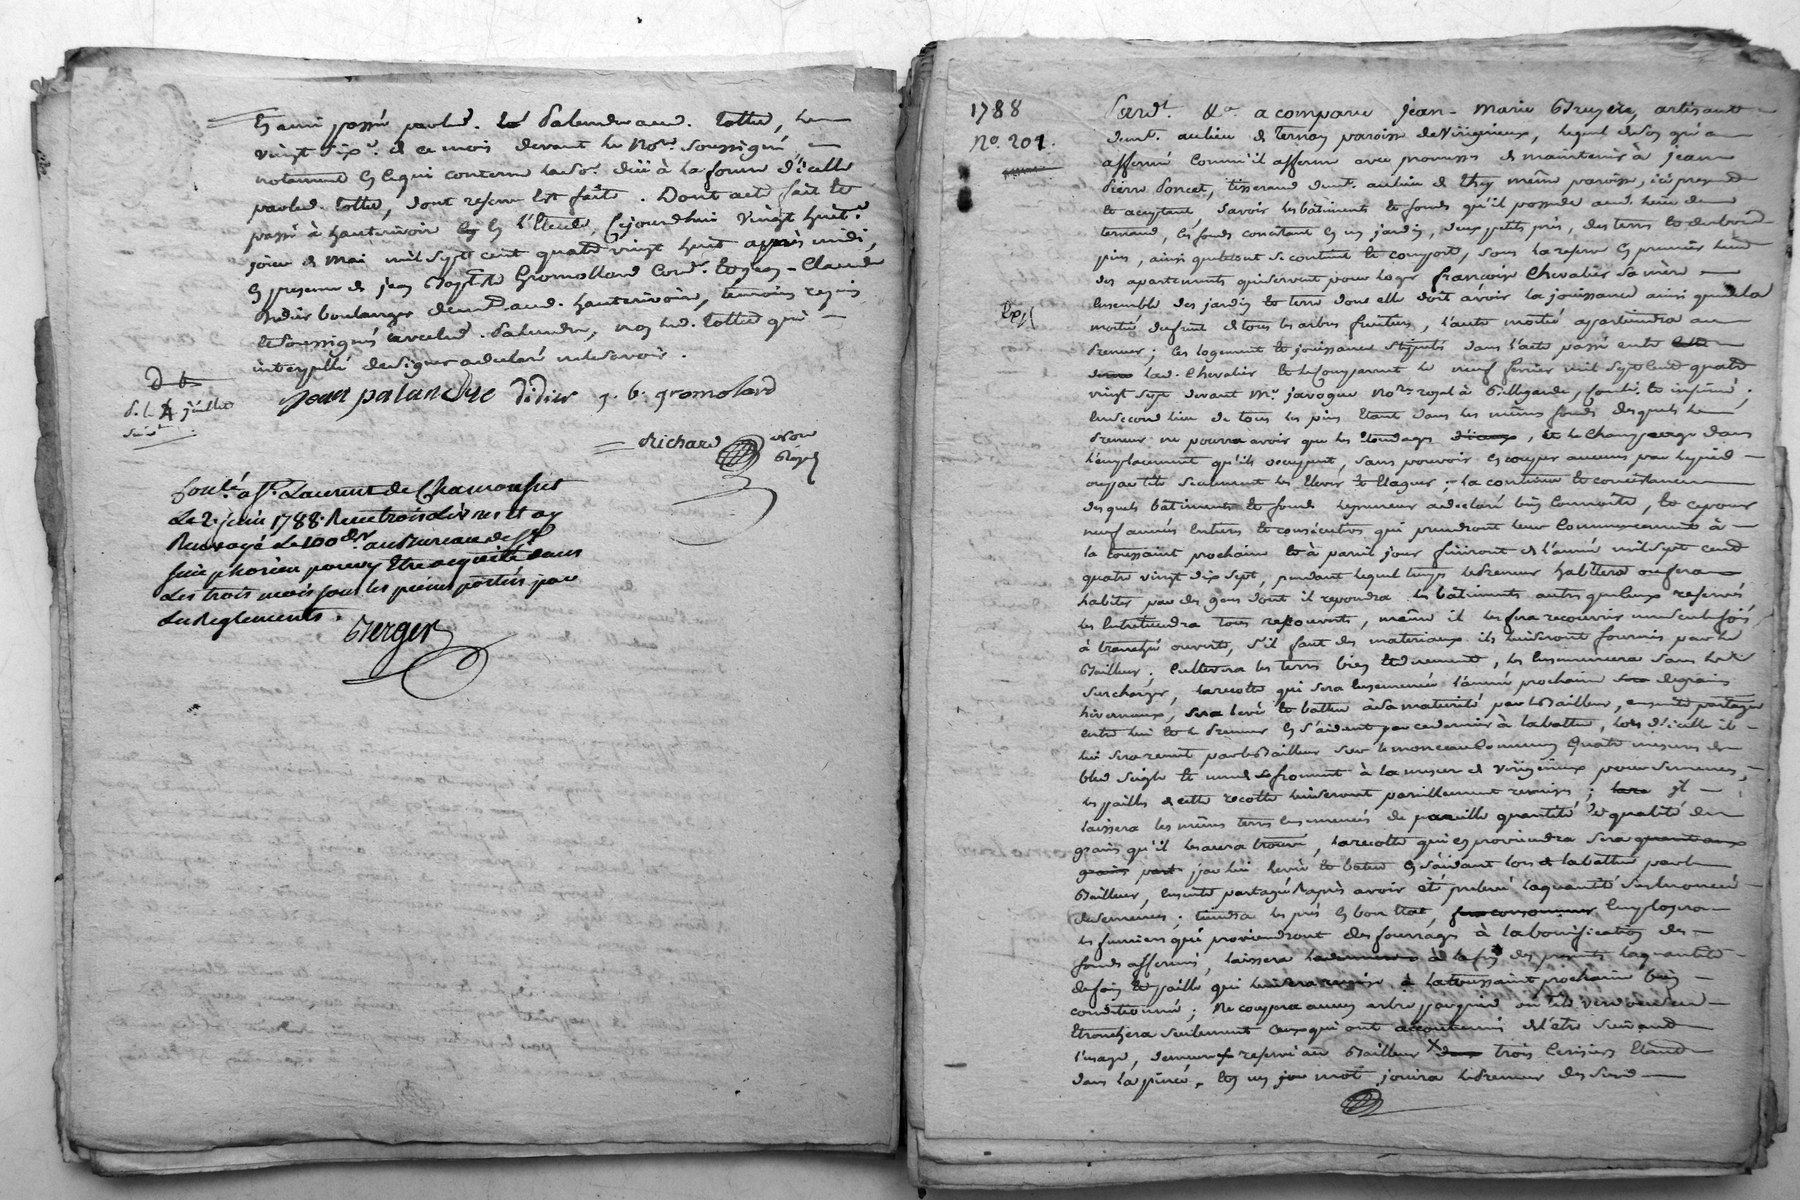 Et aussi passé par led. Palandre aud. Tollet, le
vingt six de ce mois devant le no.re soussigné,
notament en ce qui concerne la so. düe à la forme d'icelle
par led. Tollet, dont reserve est faite. Dont acte fait et
passé à hauterivoir en l'Etude, cejourdhui vingt huit.e
jour de mai mil sept cent quatre vingt huit après midi,
en presence de jean Baptiste Gromollard et jean-Claude
Didier boulanger aud. hauterivoire, témoins requis
et soussignés avec led. Palandre, non led. Tollet qui
interpellé de signer a declaré ne le savoir.
jean palandre Didier j. b. gromolard
d. l. 4 juillet
Richard
Conl.é a St. Laurent de Chamousset
Le 2. juin 1788. Reçu trois Livres et ay
Renvoyé le 100.e d.r au Bureau de St
Simphorien pour y Etre acquitté dans
Les trois mois sous les peines portées par
Les Reglements.
Berger
1788
N.o 201.
Exp.
Pard.t &.a a comparu jean-marie Bruyere, artisant
dem.t au lieu de ternan paroisse de Virigneux, lequel de son gré a
affermé comm'il afferme avec promesses de maintenir à jean
Pierre Poncet, tisserand dem.t au lieu de Thy même paroisse, ici present
et acceptant, savoir les bâtiments et fonds qu'il possede aud. lieu de
ternand, les fonds concistant en un jardin, deux petits prés, des terres et
pins, ainsi que le tout se contient et comporte, sous la reserve en premier lieu
des apartements qui servent pour loger francoise Chevalier sa mère
Ensemble des jardin et terre dont elle doit avoir la jouissance ainsi que de la
moitié du fruit de tous les arbres fruitiers, l'autre moitié appartiendra au
Preneur; ces logement et jouissance stipulés dans l'acte passé entre
lad. Chevalier et le Comparant le neuf fevrier mil sept cent quatre
vingt sept devant M.e javogue no.re royal à Bellegarde, Conl.é et insinué;
En second lieu de tous les pins étant dans les mêmes fonds desquels le
Preneur ne pourra avoir que les élondages, et le champeage dans
l'emplacement qu'ils occupent, sans pouvoir en couper aucuns par le pied
ou par tête seulement les Elever et Elaguer. la contenue et concistance
desquels bâtiments et fonds le preneur a declaré bien connoitre, et ce pour
neuf années entieres et consécutives qui prendront leur commencement à
la toussaint prochaine et à pareil jour finiront de l'année mil sept cent
quatre vingt dix sept, pendant lequel temps le Preneur habitera ou fera
habiter par des gens dont il repondra les bâtiments autres que ceux reservés
les entretiendra tous recouverts, même il les fera recouvrir une seule fois
à tranche ouverte, s'il faut des materiaux ils lui seront fournis par le
Bailleur; Cultivera les terres bien et duement, les ensemencera sans les
surcharger, la recolte qui sera ensemencée l'année prochaine de grains
hivernaux, sera levée et battue à sa maturité par le Bailleur, ensuite partagée
entre lui et le Preneur en s'aidant par ce dernier à la battre, lors d'icelle il
lui sera remit par le Bailleur sur le monceau Commun quatre mesures de
bled seigle et une de froment à la mesure de Virigneux pour semences,
les pailles de cette recolte lui seront pareillement remises; il
laissera les mêmes terres ensemencées de pareille quantité et qualité de
grains qu'il les aura trouvé, la recolte qui en proviendra sera quant aux
grains par lui levée et batue en s'aidant lors de la battre par le
Bailleur, ensuite partagée après avoir été prelevé la quantité susénoncée
de semences; tiendra les prés en bon état, employera
les fumiers qui proviendront des fourrages à la bonification des
fonds affermés, laissera à la fin des presentes la quantité
de foin et paille qui lui sera remise à la toussaint prochaine bien
conditionné; Ne coupera aucun arbre par pied ou tête verd ou sec
Etronchera seulement ceux qui ont accoutumé de l'etre suivant
l'usage, demeure reservé au Bailleur trois Cerisiers étant
dans la pinée. En un mot jouira le Preneur des susd.